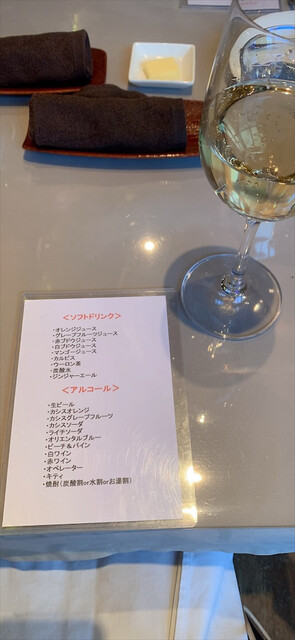 ＜ソフトドリンク＞
・オレンジジュース
・グレープフルーツジュース
・赤ブドウジュース
・白ブドウジュース
・マンゴージュース
・カルピス
・ウーロン茶
・炭酸水
・ジンジャーエール
＜アルコール＞
・生ビール
・カシスオレンジ
・カシスグレープフルーツ
・カシスソーダ
・ライチソーダ
・オリエンタルブルー
・ピーチ＆パイン
・白ワイン
・赤ワイン
・オペレーター
・キティ
・焼酎（炭酸割or水割orお湯割）